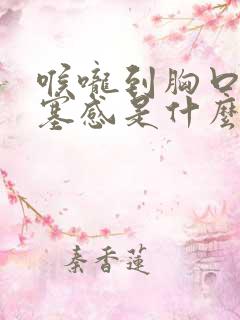 喉嚨到胸口
塞感是什麼
秦香蓮